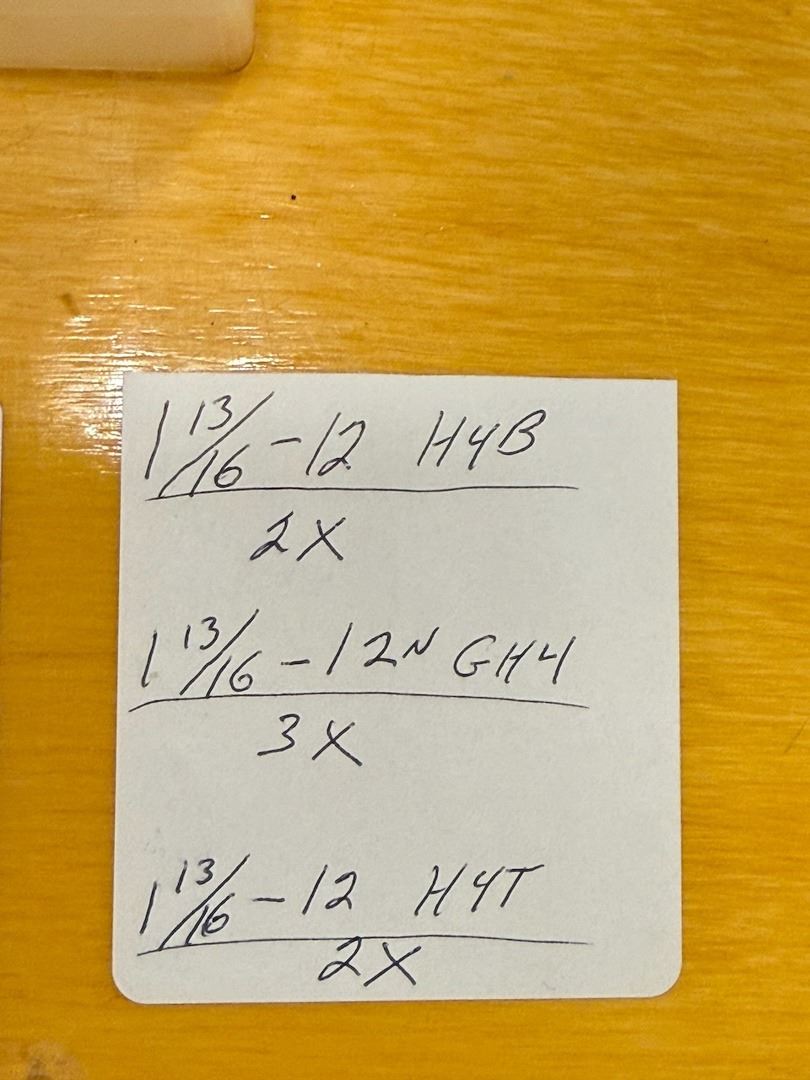 1 13/16 - 12 H4B
2X
1 13/16 - 12N GH4
3X
1 13/16 - 12 H4T
2X